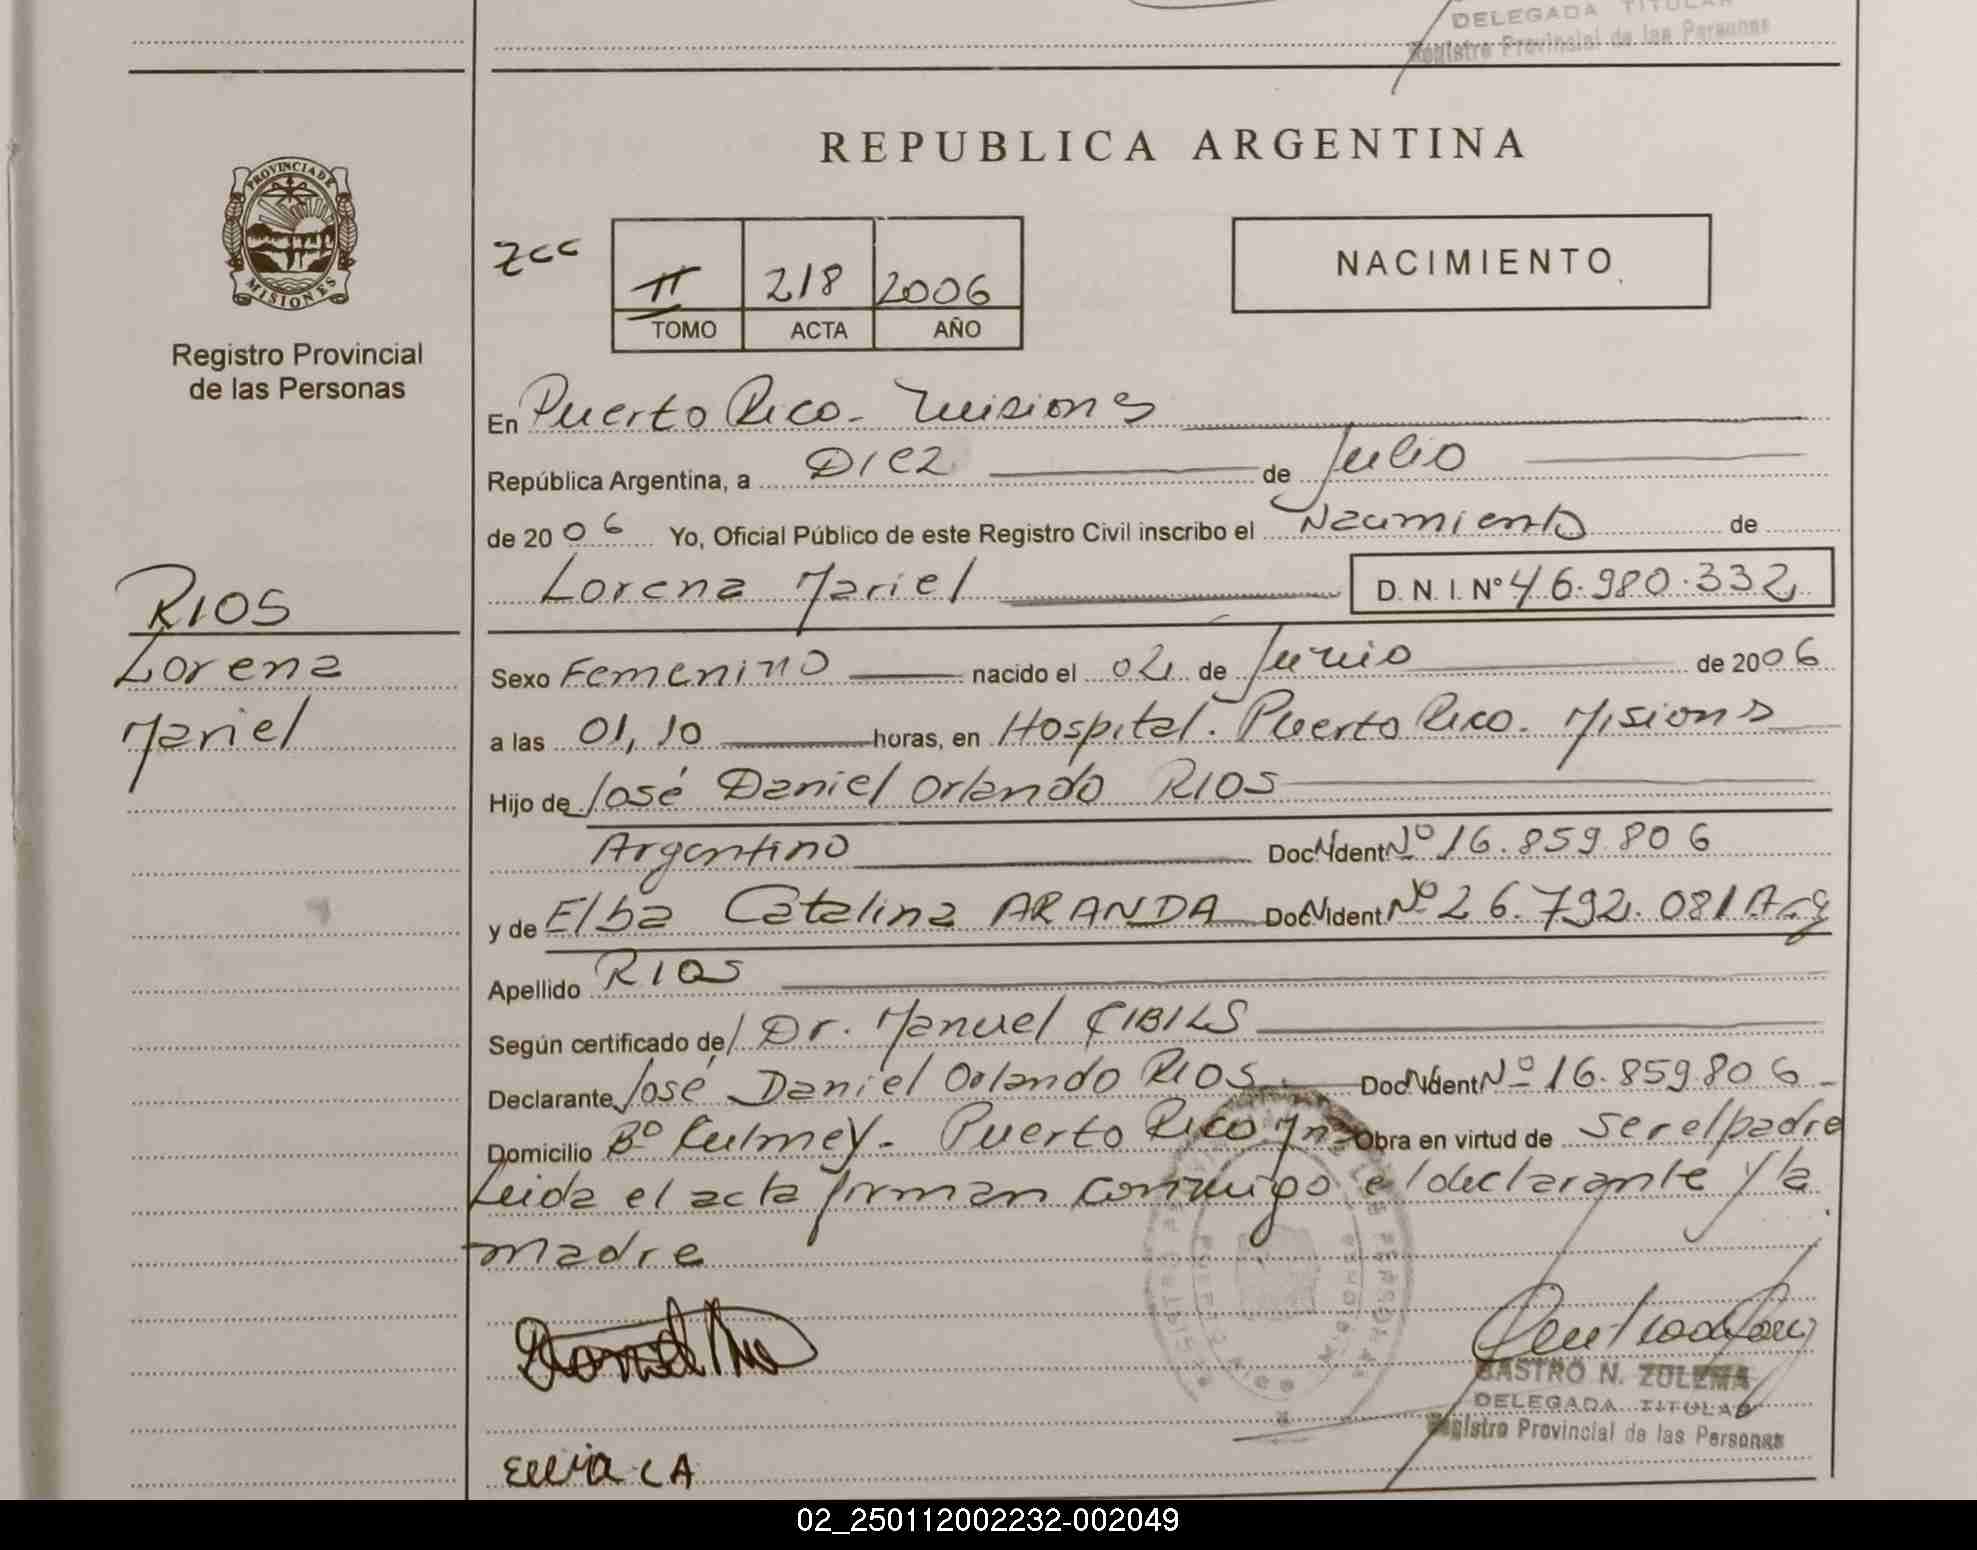 DELEGADA TITULAR
Registro Provincial de las Personas
REPUBLICA ARGENTINA
PROVINCIA DE
MISIONES
Registro Provincial
de las Personas
zcc
II 218 2006
TOMO ACTA AÑO
NACIMIENTO
En Puerto Rico - Misiones
República Argentina, a Diez de Julio
de 2006 Yo, Oficial Público de este Registro Civil inscribo el Nacimiento de
Lorena Mariel D.N.I. Nº 46.980.332
RIOS
Lorena
Mariel
Sexo Femenino nacido el 02 de Junio de 2006
a las 01,10 horas, en Hospital. Puerto Rico. Misiones
Hijo de José Daniel Orlando RIOS
Argentino Doc. Ident Nº 16.859.806
y de Elba Catalina ARANDA Doc. Ident Nº 26.792.081 Arg
Apellido RIOS
Según certificado de Dr. Manuel CIBILS
Declarante José Daniel Orlando RIOS Doc. Ident Nº 16.859.806
Domicilio Bº Kulmey - Puerto Rico Mnes Obra en virtud de ser el padre
Leida el acta firman conmigo el declarante y la
madre
CASTRO N. ZULEMA
DELEGADA TITULAR
Registro Provincial de las Personas
02_250112002232-002049